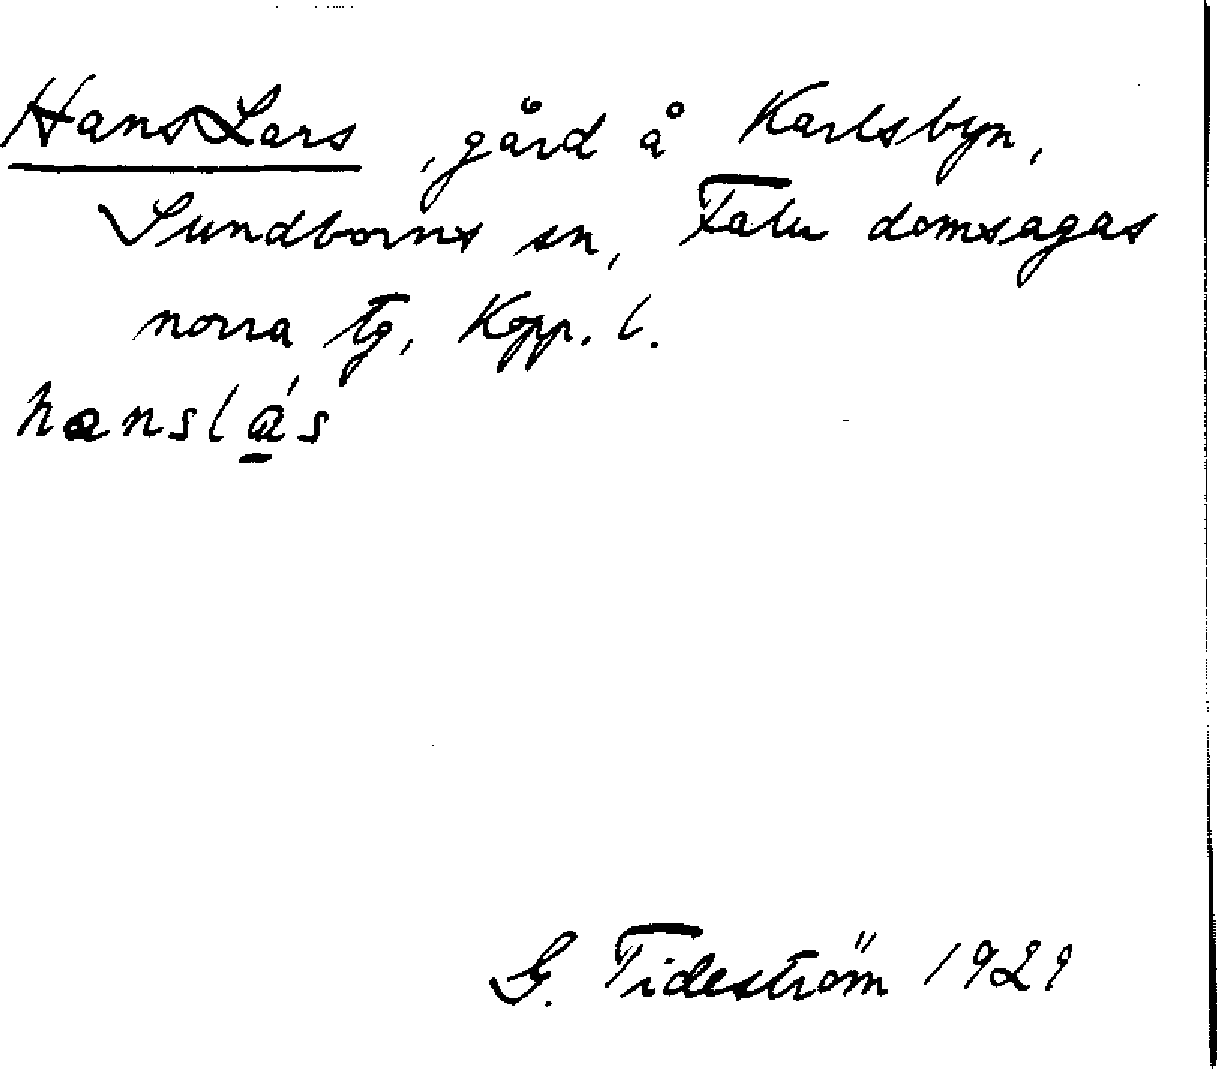 Hans Lars, gård å Karlsbyn,
Sundborns sn, Falu domsagas
norra tg, Kopp. l.
hanslás
G. Tideström 1929